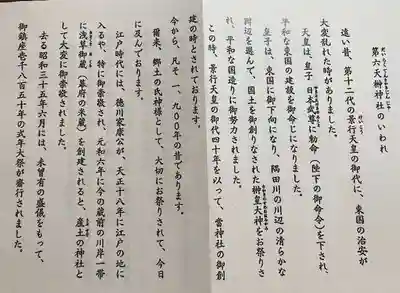 第六天榊神社のいわれ
遠い昔、第十二代の景行天皇の御代に、東国の治安が
大変乱れた時がありました。
天皇は、皇子 日本武尊に勅命(陛下の御命令)を下され、
平和な東国の建設を御命じになりました。
皇子は、東国に御下向になり、隅田川の川辺の清らかな
周辺を選んで、国土を御創りなされた榊皇大神をお祭りさ
れ、平和な国造りに御努力されました。
この時、景行天皇の御代四十年を以って、当神社の御創
建の時とされております。
今から、凡そ 一、九〇〇年の昔であります。
爾来、郷土の氏神様として、大切にお祭りされて、今日
に及んでおります。
江戸時代には、徳川家康公が、天正十八年に江戸の地に
入るや、特に御崇敬され、元和六年に今の蔵前の川岸一帯
に浅草御蔵(幕府の米蔵)を創建されると、産土の神社と
して大変に御崇敬されました。
去る昭和三十五年六月には、未曾有の盛儀をもって、
御鎮座壱千八百五十年の式年大祭が斎行されました。